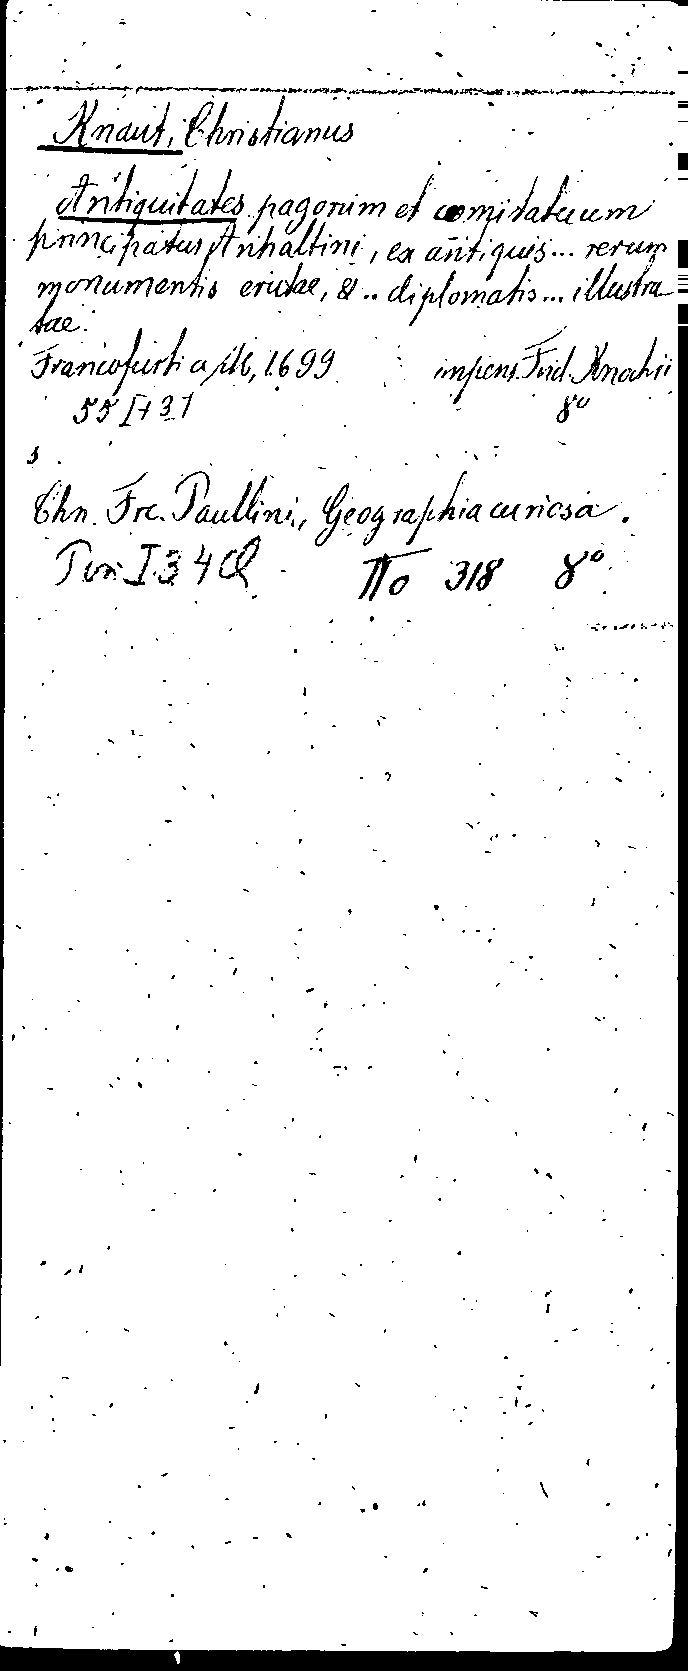 Knaut, Christianus
Antiquitates pagorum et comitatuum
principatus Anhaltini, ex antiquis... rerum
monumentis erutae, & .. diplomatis... illustra
tae.
Francofurti a M, 1699 impens. Frid. Knochii
55 [+3] 8°
s.
Chn. Frc. Paullini, Geographia curiosa.
I 34 No 318 8°